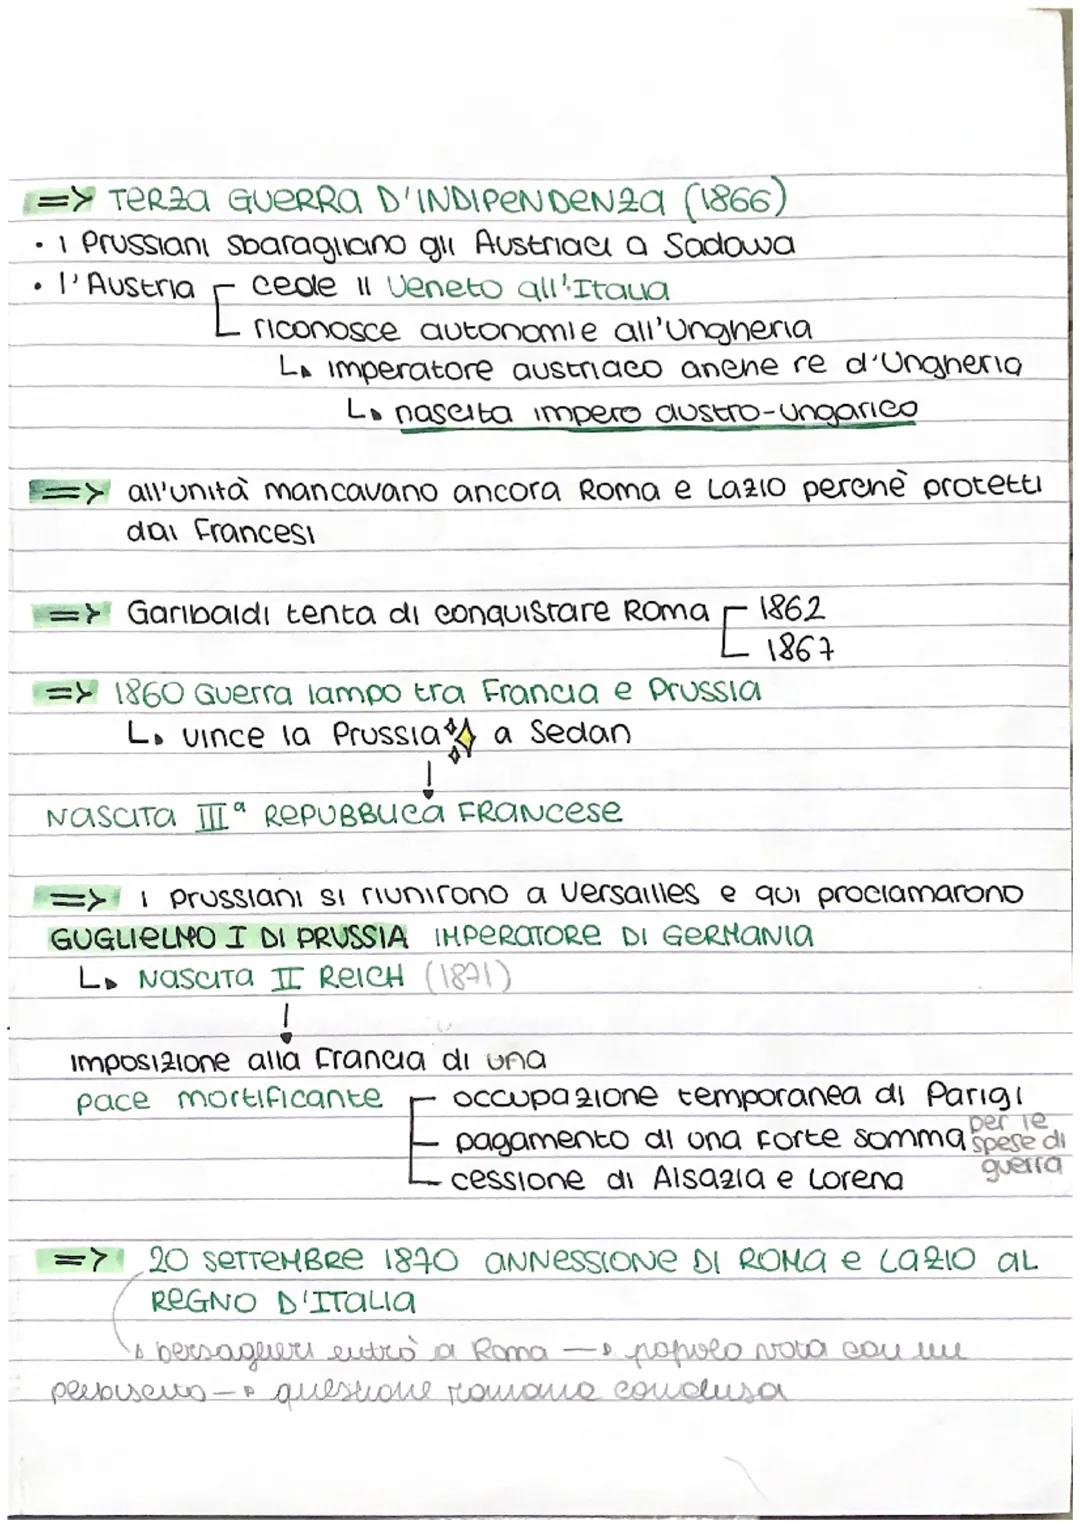 => TERZA GUERRA D'INDIPENDENZA (1866)
• i Prussiani sbaragliano gli Austriaci a Sadowa
• l'Austria cede il Veneto all'Italia
riconosce autonomie all'Ungheria
↳ imperatore austriaco anche re d'Ungheria
↳ nascita impero austro-ungarico
=> all'unità mancavano ancora Roma e Lazio perchè protetti
dai Francesi
=> Garibaldi tenta di conquistare Roma 1862
1867
=> 1860 Guerra lampo tra Francia e Prussia
↳ vince la Prussia a Sedan
↓
NASCITA IIIª REPUBBLICA FRANCESE
=> i Prussiani si riunirono a Versailles e qui proclamarono
GUGLIELMO I DI PRUSSIA IMPERATORE DI GERMANIA
↳ NASCITA II REICH (1871)
↓
imposizione alla Francia di una
pace mortificante occupazione temporanea di Parigi
pagamento di una forte somma per le spese di guerra
cessione di Alsazia e Lorena
=> 20 SETTEMBRE 1870 ANNESSIONE DI ROMA E LAZIO AL
REGNO D'ITALIA
↳ bersaglieri entrò a Roma → popolo vota con un
plebiscito → questione romana conclusa